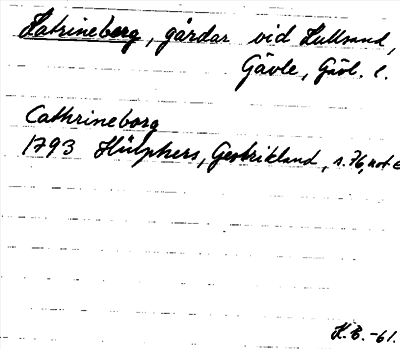 Katrineberg, gårdar vid Hullsand,
Gävle, Gävl. l.
Cathrineborg
1793 Hülphers, Gestrikland, s. 76, not e
K.B. -61.